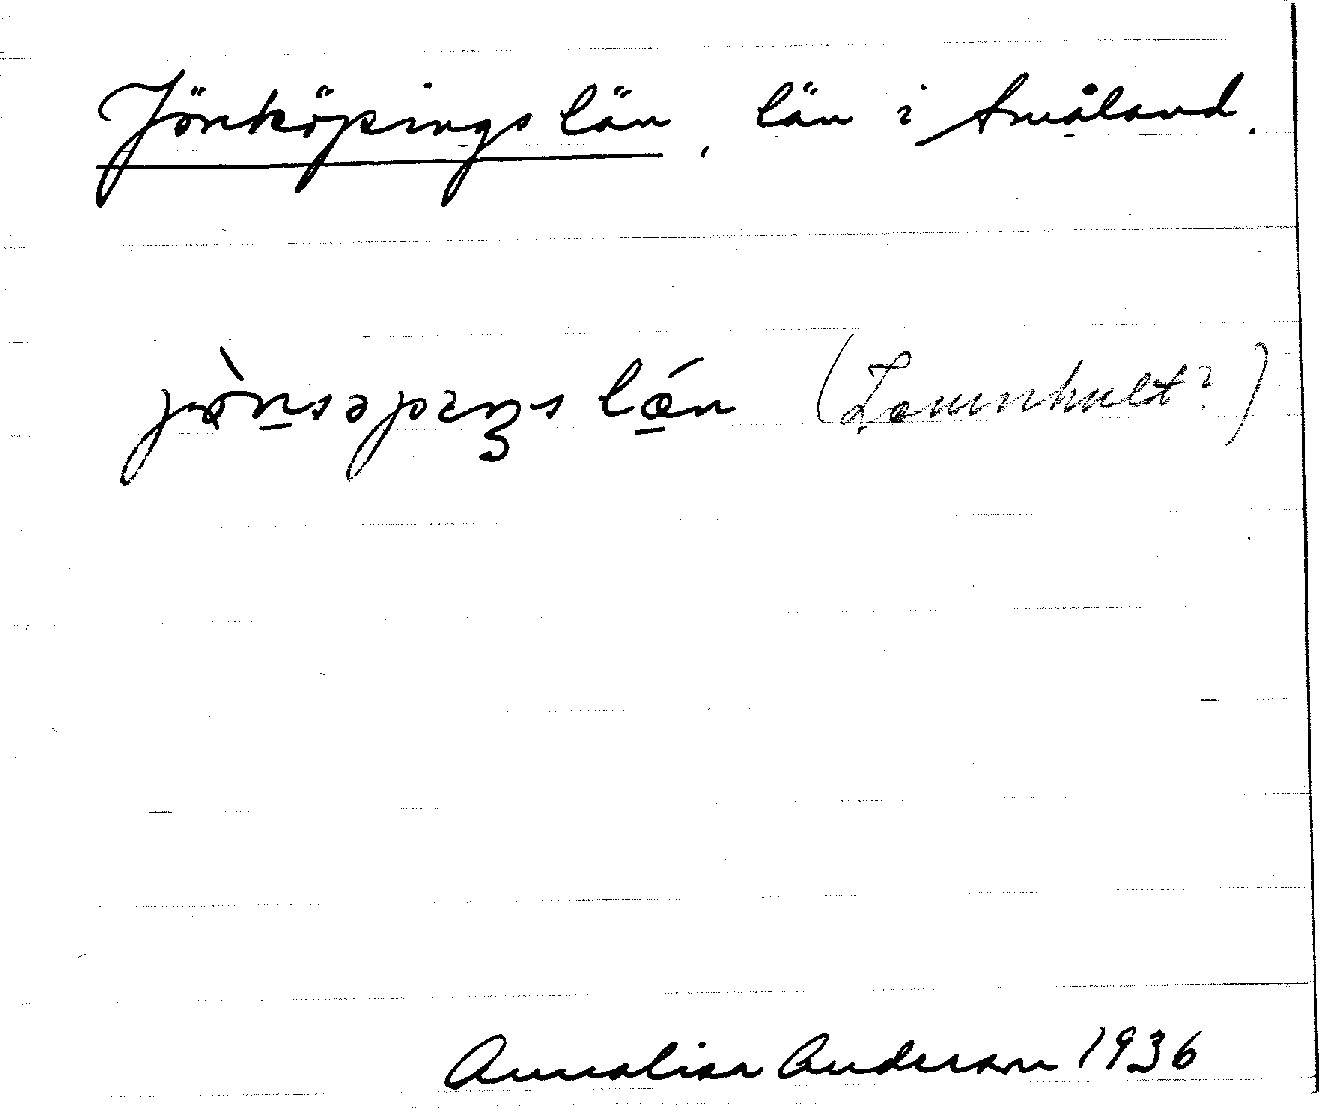 Jönköpings län, län i Småland.
jö̀nsəpiŋs lǽn (Lannhult?)
Annalisa Anderson 1936